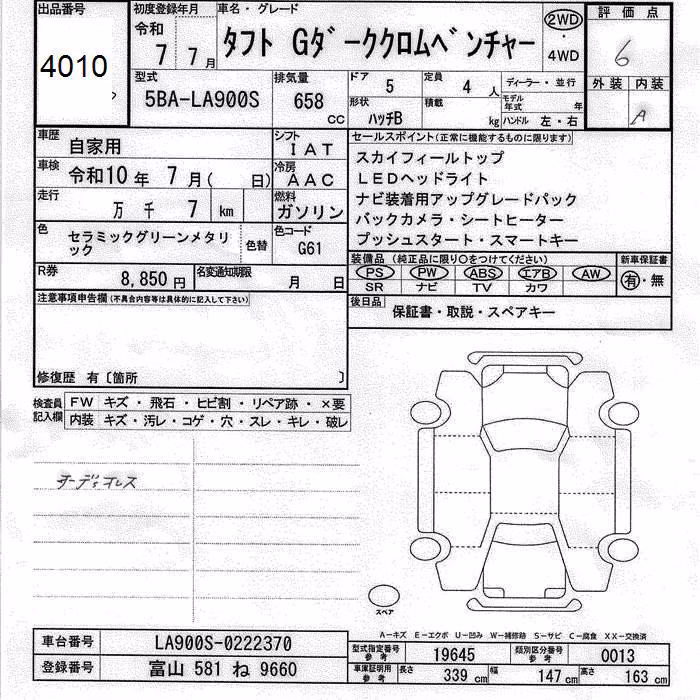 出品番号 初度登録年月 車名・グレード 評価点
4010 令和 7年 7月 タフト Gダーククロムベンチャー 2WD・4WD 6
型式 排気量 ドア 5 定員 4人 ディーラー・並行 外装 内装
5BA-LA900S 658cc 形状 ハッチB 積載 kg モデル年式 年 ハンドル 左・右 A
車歴 自家用 シフト IAT セールスポイント(正常に機能するものに限ります)
車検 令和10年 7月( 日) 冷房 AAC スカイフィールトップ
LEDヘッドライト
走行 万 千 7 km 燃料 ガソリン ナビ装着用アップグレードパック
バックカメラ・シートヒーター
色 セラミックグリーンメタリック 色替 色コード G61 プッシュスタート・スマートキー
R券 8,850円 名変通知期限 月 日 装備品(純正品に限り○をつけてください) 新車保証書
PS PW ABS エアB AW 有・無
SR ナビ TV カワ
注意事項申告欄(不具合内容等は具体的に記入して下さい) 後日品 保証書・取説・スペアキー
修復歴 有〔箇所 〕
検査員記入欄 FW キズ・飛石・ヒビ割・リペア跡・×要
内装 キズ・汚レ・コゲ・穴・スレ・キレ・破レ
スペア
A-キズ E-エクボ U-凹み W-補修跡 S-サビ C-腐食 XX-交換済
車台番号 LA900S-0222370 型式指定番号 参考 19645 類別区分番号 参考 0013
登録番号 富山 581 ね 9660 車庫証明用 参考 長さ 339 cm 幅 147 cm 高さ 163 cm